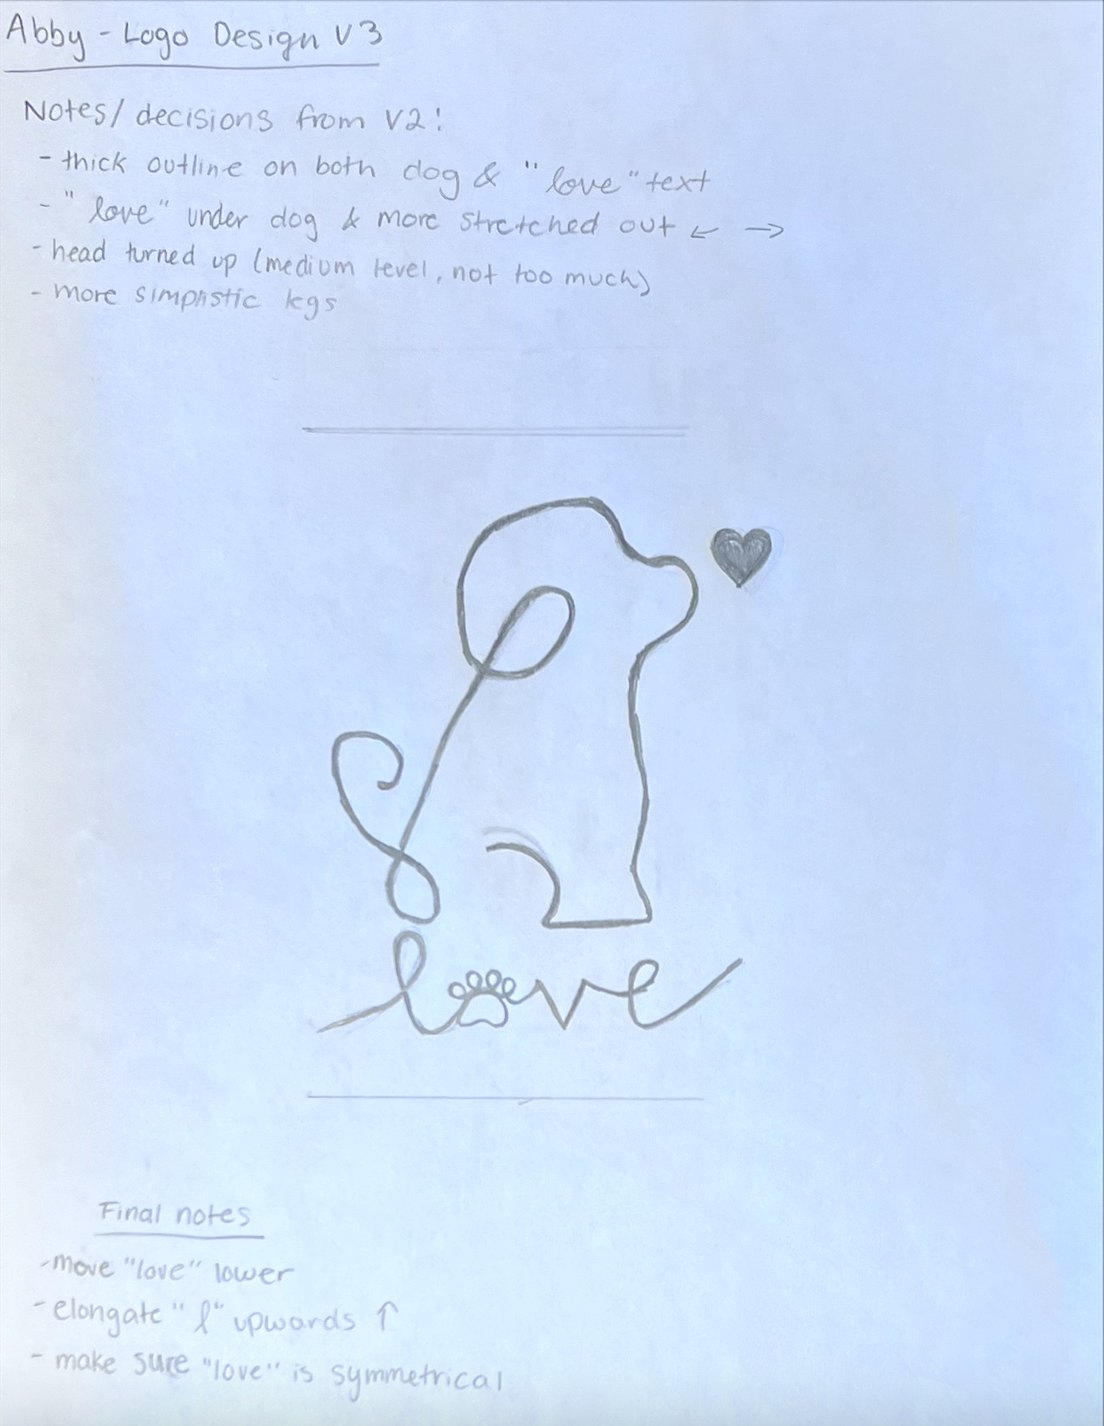 Abby - Logo Design V3
Notes/decisions from V2:
- thick outline on both dog & "love" text
- "love" under dog & more stretched out ← →
- head turned up (medium level, not too much)
- more simplistic legs
love
Final notes
- move "love" lower
- elongate "l" upwards ↑
- make sure "love" is symmetrical